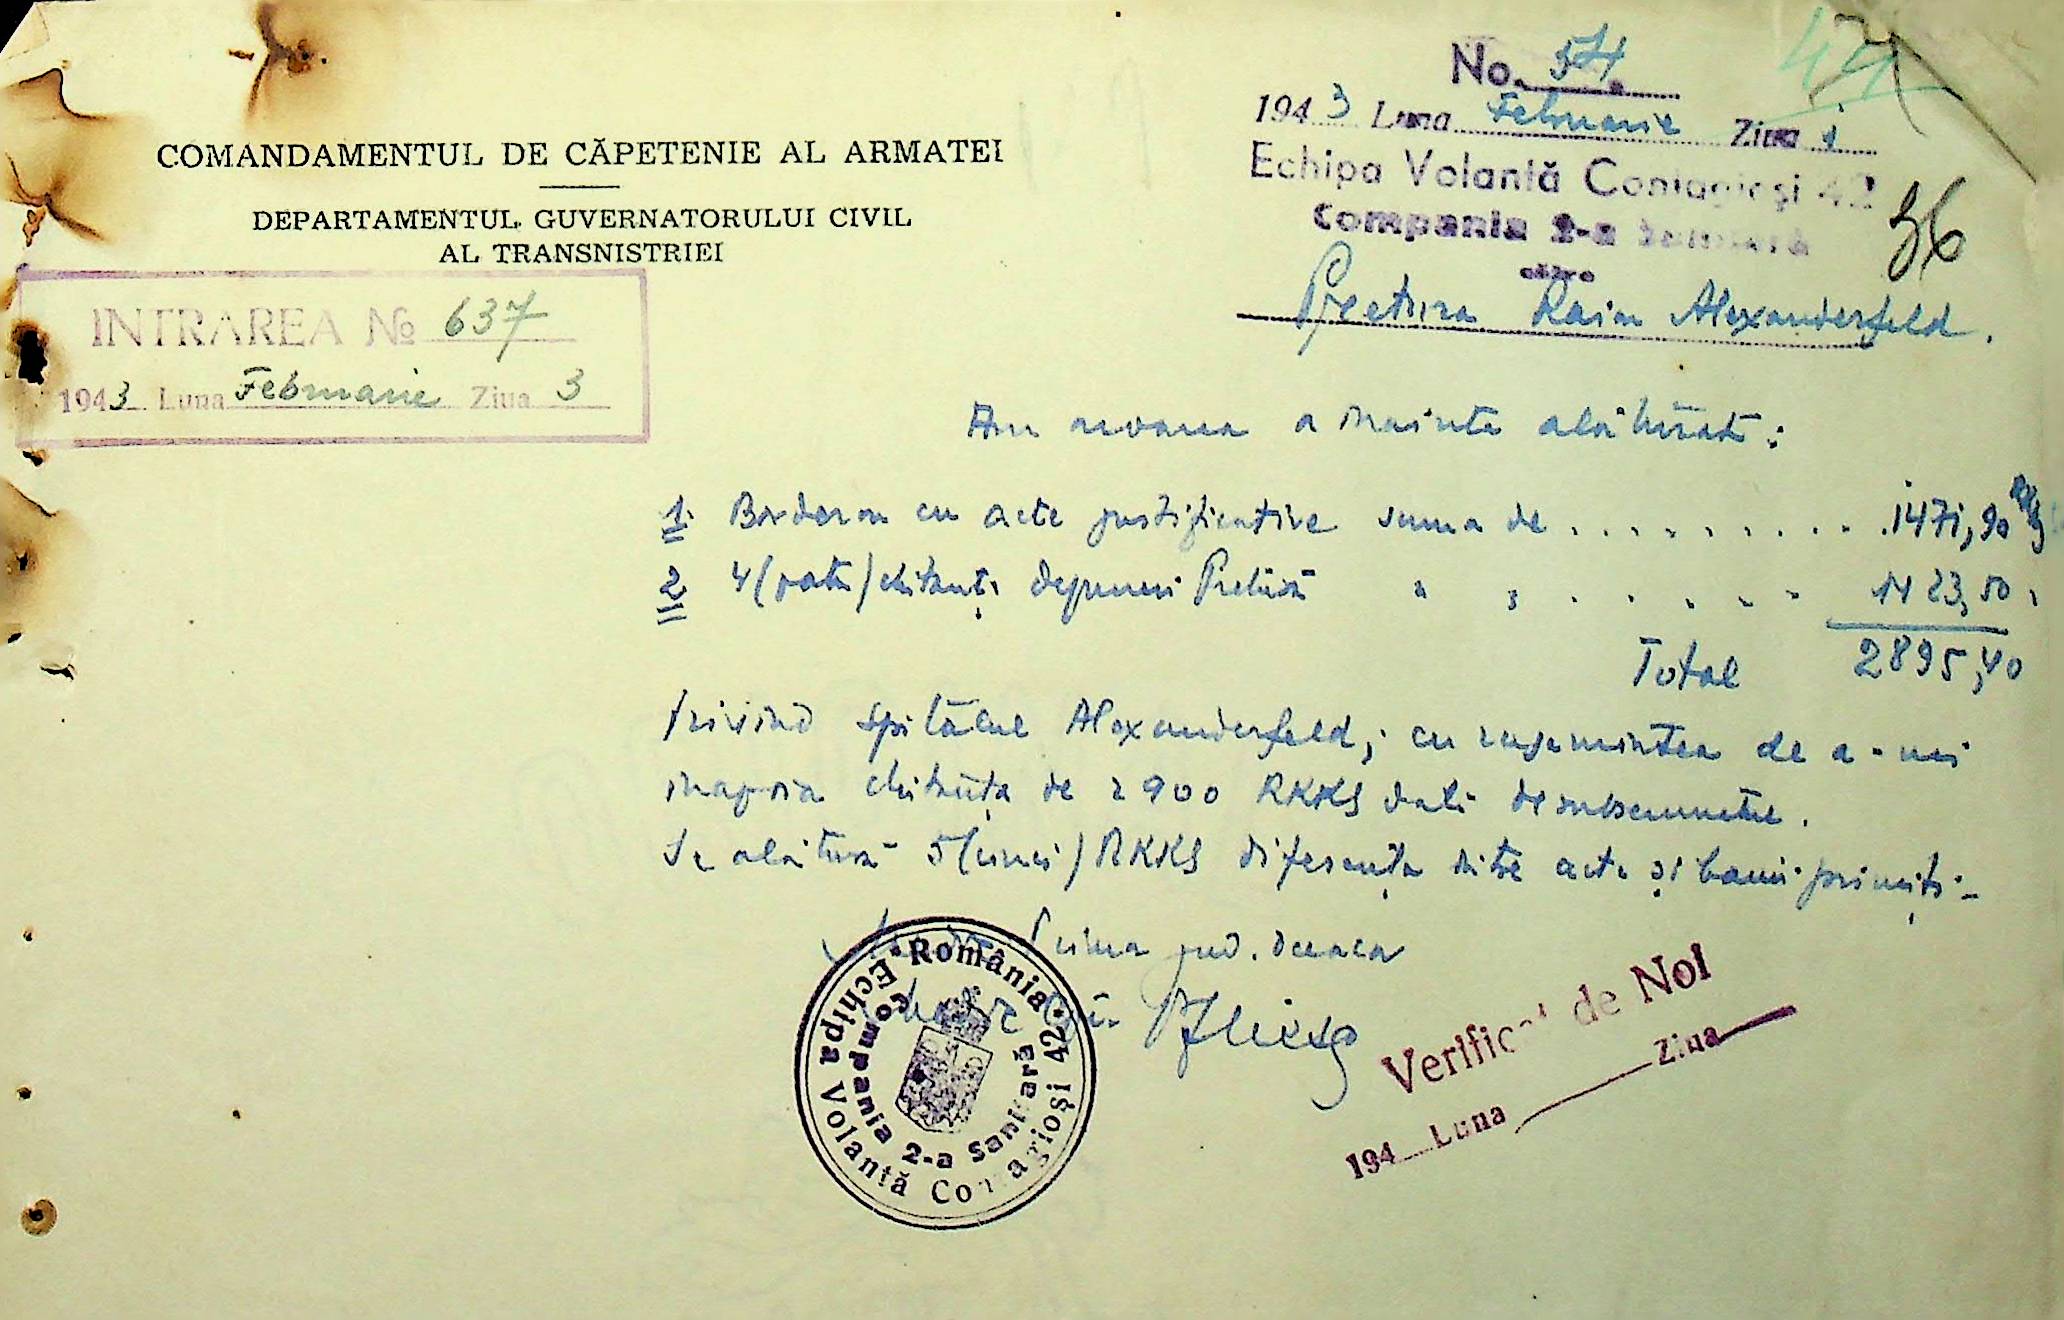 No. 54
44
1943 Luna Februarie Ziua 1
Echipa Volantă Contagioși 42
Compania 2-a Sanitară
36
către
Pretura Raion Alexanderfeld.
COMANDAMENTUL DE CĂPETENIE AL ARMATEI
DEPARTAMENTUL GUVERNATORULUI CIVIL
AL TRANSNISTRIEI
INTRAREA No 637
1943 Luna Februarie Ziua 3
Am onoarea a înainta alăturat:
1. Borderou cu acte justificative suma de . . . . . . . . . . 1471,90
2 4(patru) chitanți depuneri " " . . . . . 1423,50
Total 2895,40
privind spitalul Alexanderfeld, cu rugamintea de a-mi
inapoia chitanța de 2900 RKKS dată de subsemnatul.
Se alătură 5(cinci) RKKS diferența dintre acte și banii primiți.-
România
Echipa Volantă Contagioși 42
Compania 2-a Sanitară
Verificat de Noi
194 Luna Ziua